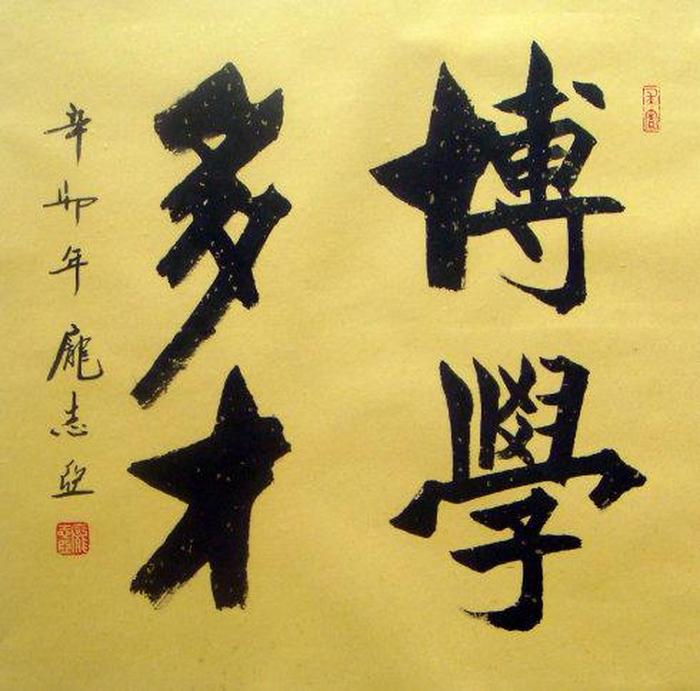 博學
多才
辛卯年龐志亞